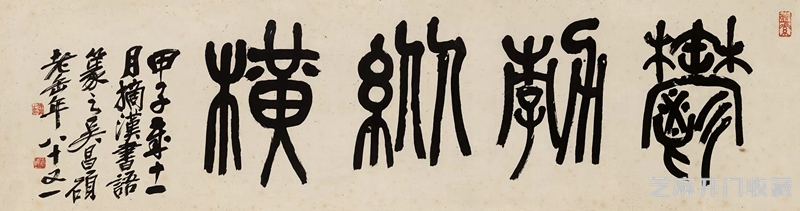 鬱勃縱橫
甲子歲十一
月摘漢書語
篆之吳昌碩
老缶年八十又一
芝麻开门收藏